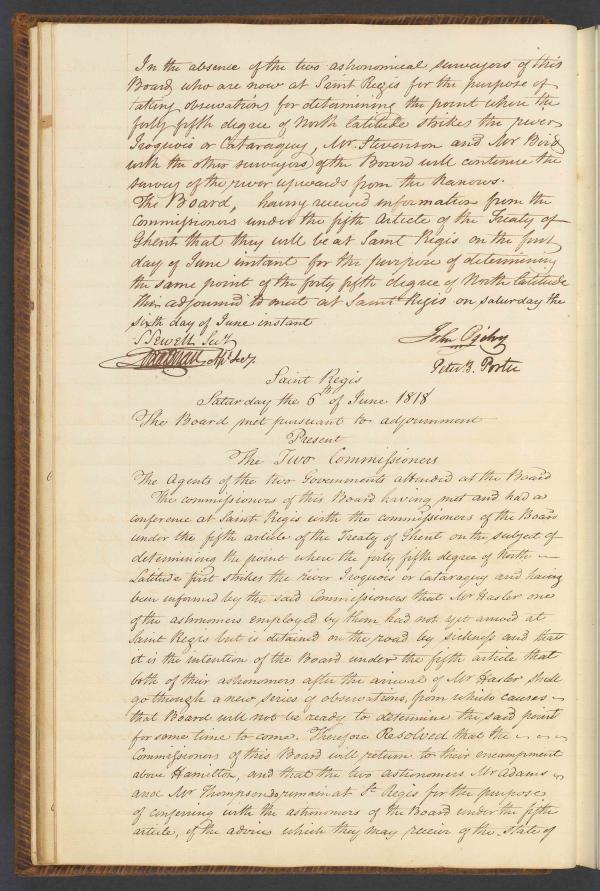 In the absence of the two astronomical surveyors of this
Board who are now at Saint Regis for the purpose of
taking observations for determining the point where the
forty fifth degree of North latitude strikes the river
Iroquois or Cataraguy, Mr. Stevenson and Mr Bird
with the other surveyors of the Board will continue the
survey of the river upwards from the Kanows.
The Board, having received information from the
Commissioners under the fifth Article of the Treaty of
Ghent that they will be at Saint Regis on the first
day of June instant for the purpose of determining
the same point of the forty fifth degree of North latitude
then adjourned to meet at Saint Regis on saturday the
sixth day of June instant
S Sewell Secy John Ogilvy
Secy. Peter B. Porter
Saint Regis
Saturday the 6th of June 1818
The Board met pursuant to adjournment
Present
The Two Commissioners
The Agents of the two Governments attended at the Board
The commissioners of this Board having met and had a
conference at Saint Regis with the commissioners of the Board
under the fifth article of the Treaty of Ghent on the subject of
determining the point where the forty fifth degree of North
Latitude first strikes the river Iroquois or Cataraguy and having
been informed by the said Commissioners that Mr Hasler one
of the astronomers employed by them had not yet arrived at
Saint Regis but is detained on the road by sickness and that
it is the intention of the Board under the fifth article that
both of their astronomers after the arrival of Mr Hasler shall
go through a new series of observations, from which causes
that Board will not be ready to determine the said point
for some time to come. Therefore Resolved that the
Commissioners of this Board will return to their encampment
above Hamilton, and that the two astronomers Mr Adams
and Mr Thompson do remain at St Regis for the purpose
of conferring with the astronomers of the Board under the fifth
article, of the advice which they may receive of the state of